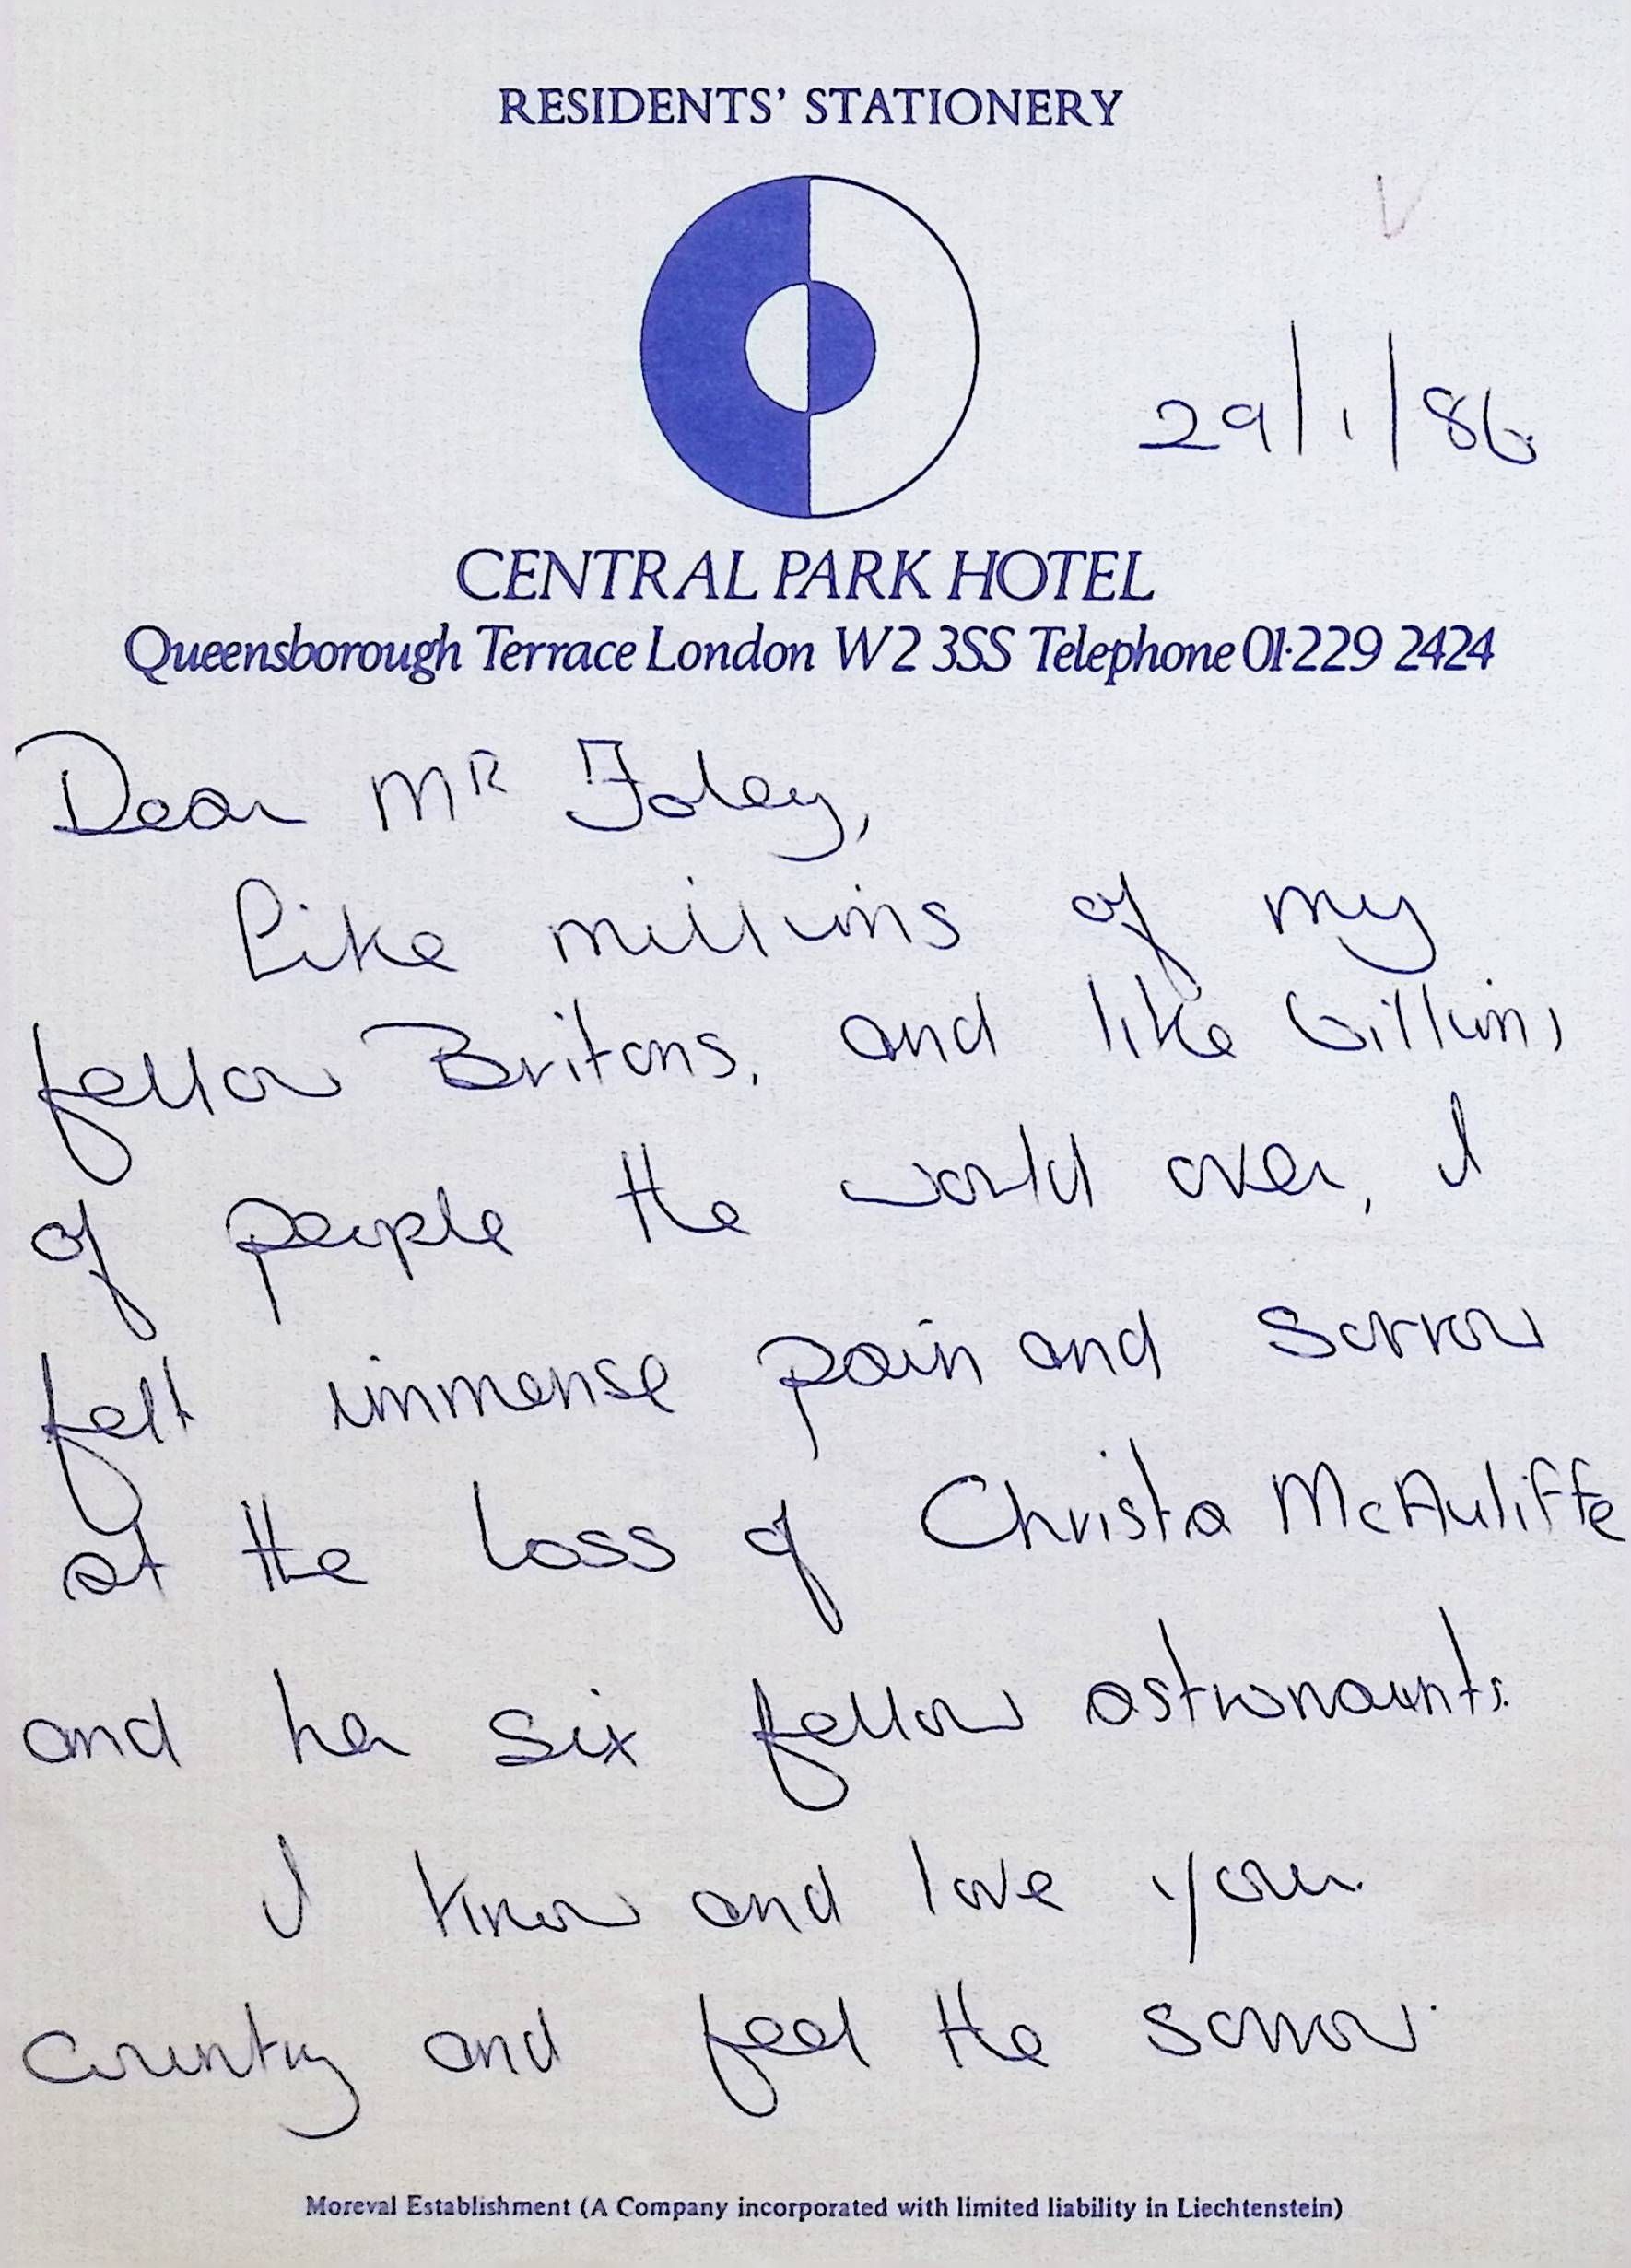 RESIDENTS' STATIONERY
29/1/86.
CENTRAL PARK HOTEL
Queensborough Terrace London W2 3SS Telephone 01·229 2424
Dear MR Foley,
Like millions of my
fellow Britons, and like billions
of people the world over, I
felt immense pain and sorrow
at the loss of Christa McAuliffe
and her six fellow astronaunts.
I know and love your
country and feel the sorrow.
Moreval Establishment (A Company incorporated with limited liability in Liechtenstein)